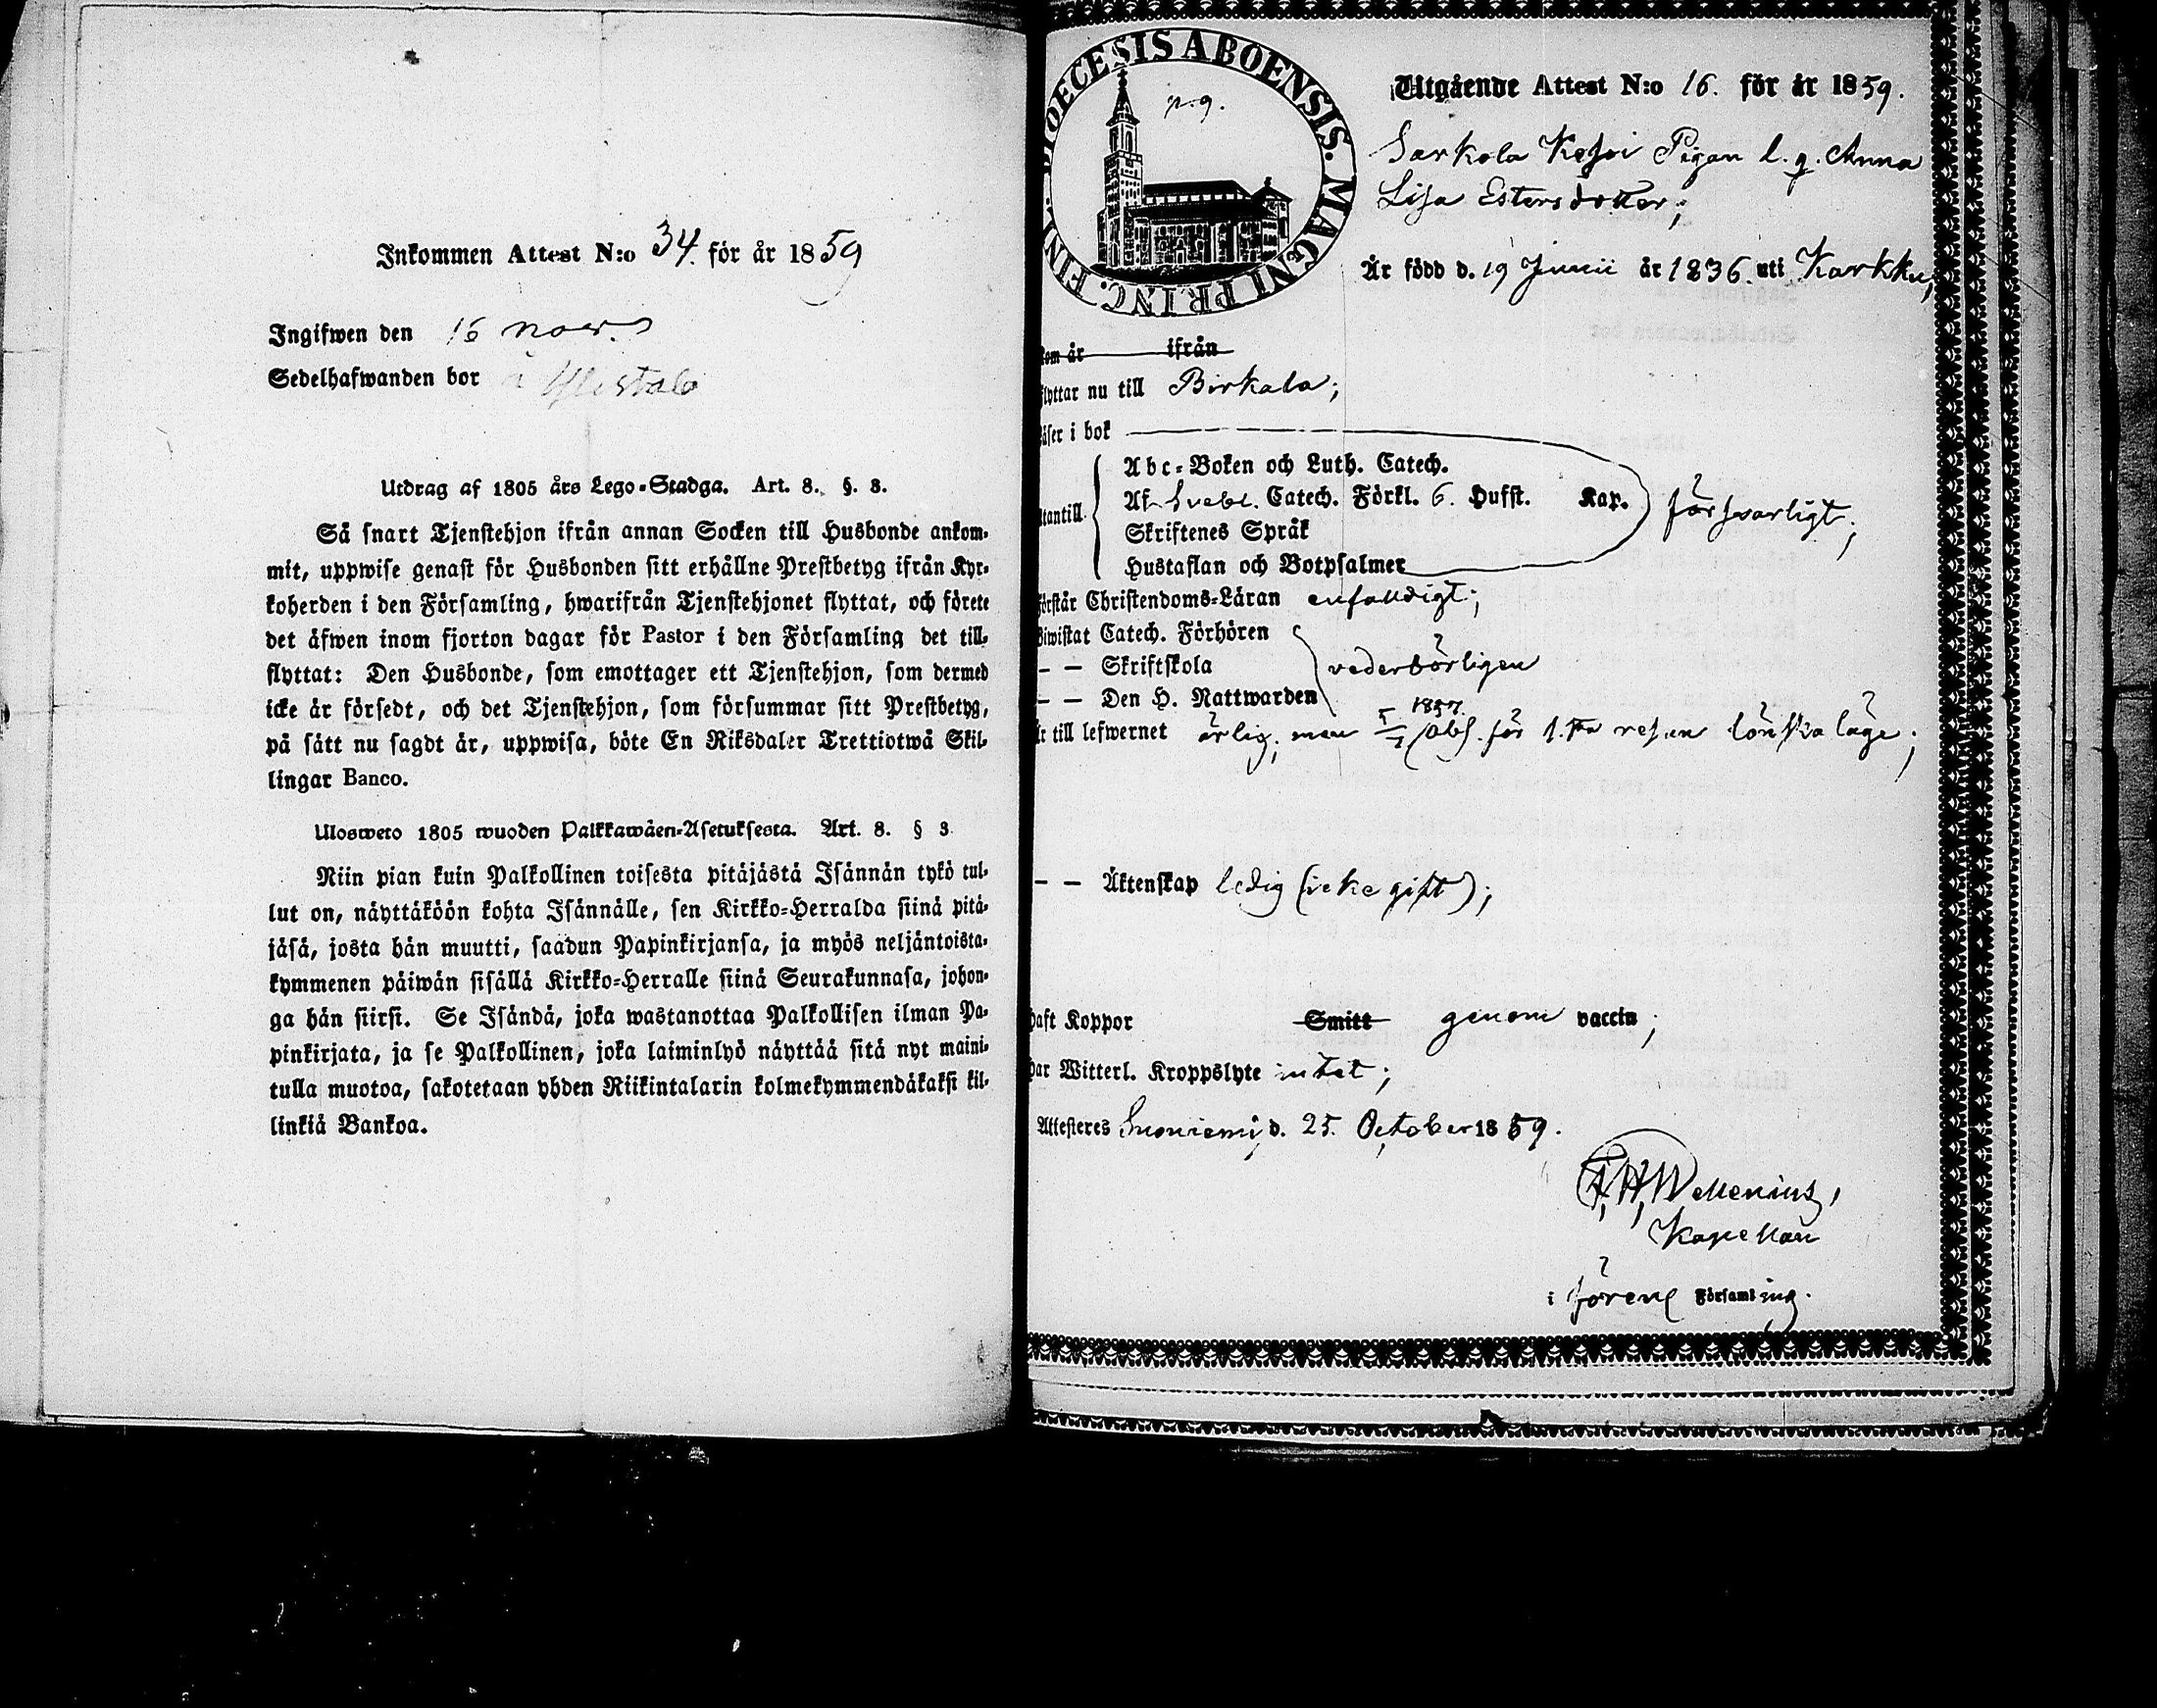 Inkommen Attest N:o 34. för år 1859
Ingifwen den 16 novr.
Sedelhafwanden bor å
Utdrag af 1805 års Lego-Stadga. Art. 8. §. 3.
Så snart Tjenstehjon ifrån annan Socken till Husbonde ankom-
mit, uppwise genast för Husbonden sitt erhållne Prestbetyg ifrån Kyr-
koherden i den Församling, hwarifrån Tjenstehjonet flyttat, och förete
det äfwen inom fjorton dagar för Pastor i den Församling det till-
flyttat: Den Husbonde, som emottager ett Tjenstehjon, som dermed
icke är försedt, och det Tjenstehjon, som försummar sitt Prestbetyg,
på sätt nu sagdt är, uppwisa, böte En Riksdaler Trettiotwå Skil-
lingar Banco.
Ulosweto 1805 wuoden Palkkawäen-Asetuksesta. Art. 8. § 3
Niin pian kuin Palkollinen toisesta pitäjästä Isännän tykö tul-
lut on, näyttäköön kohta Isännälle, sen Kirkko-Herralda siinä pitä-
jäsä, josta hän muutti, saadun Papinkirjansa, ja myös neljäntoista-
kymmenen päiwän sisällä Kirkko-Herralle siinä Seurakunnasa, johon-
ga hän siirsi. Se Isändä, joka wastanottaa Palkollisen ilman Pa-
pinkirjata, ja se Palkollinen, joka laiminlyö näyttää sitä nyt maini-
tulla muotoa, sakotetaan yhden Riikintalarin kolmekymmendäkaksi kil-
linkiä Bankoa.
DIOECESIS ABOENSIS. MAGNI PRINC. FINL.
p. 9.
Utgående Attest N:o 16. för år 1859.
Sarkola Pigan l. q. Anna
Lisa Estersdotter;
Är född d. 19 Junii år 1836. uti Karkku;
kom år ifrån
flyttar nu till Birkala;
Läser i bok
Abc-Boken och Luth. Catech.
Af Svebel. Catech. Förkl. 6. Hufst. Kap.
Utantill. försvarligt;
Skriftenes Språk
Hustaflan och Botpsalmer
Förstår Christendoms-Läran enfaldigt;
Biwistat Catech. Förhören
— — Skriftskola vederbörligen
— — Den H. Nattwarden
Är till lefwernet ärlig; men 1857. abs. för 1.sta resan lönskaläge;
— — Äktenskap ledig (icke gift);
haft Koppor Smitt genom vaccin;
har Witterl. Kroppslyte intet;
Attesteres Suoniemi, d. 25. October 1859.
Wellenius,
Kapellan
i förene Församling.